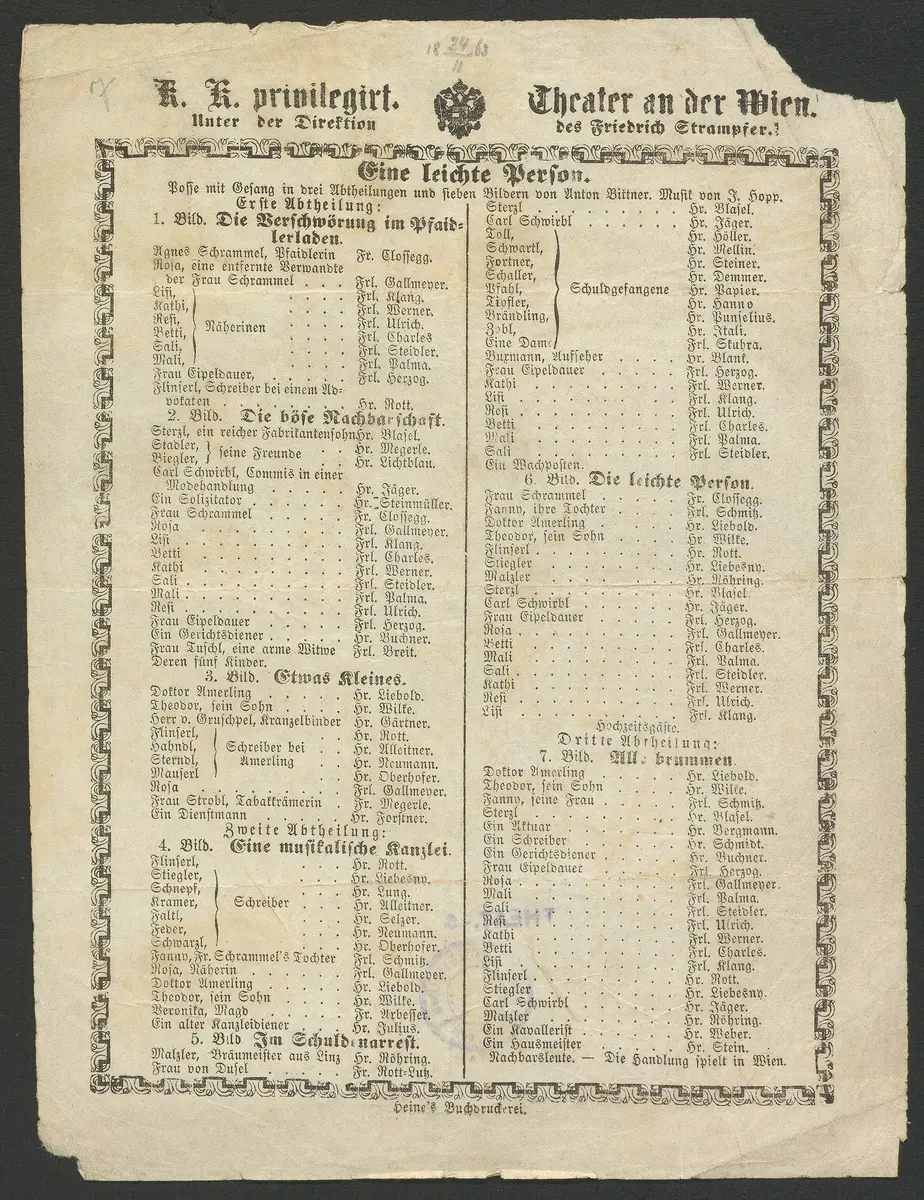 18 24/11 63
K. K. privilegirt. Theater an der Wien.
Unter der Direktion des Friedrich Strampfer.
Eine leichte Person.
Posse mit Gesang in drei Abtheilungen und sieben Bildern von Anton Bittner. Musik von J. Hopp.
Erste Abtheilung:
1. Bild. Die Verschwörung im Pfaid-
lerladen.
Agnes Schrammel, Pfaidlerin Fr. Clossegg.
Rosa, eine entfernte Verwandte
der Frau Schrammel . . . Frl. Gallmeyer.
Lisi, . . . . Frl. Klang.
Kathi, . . . . Frl. Werner.
Resi, . . . . Frl. Ulrich.
Näherinen
Betti, . . . . Frl. Charles
Sali, . . . . Frl. Steidler.
Mali, . . . . Frl. Palma.
Frau Eipeldauer, . . . . . Frl. Herzog.
Flinserl, Schreiber bei einem Ad-
vokaten . . . . . . . Hr. Rott.
2. Bild. Die böse Nachbarschaft.
Sterzl, ein reicher Fabrikantensohn Hr. Blasel.
Stadler, seine Freunde . . Hr. Megerle.
Biegler, . . Hr. Lichtblau.
Carl Schwirbl, Commis in einer
Modehandlung . . . . . Hr. Jäger.
Ein Solizitator . . . . . . Hr. Steinmüller.
Frau Schrammel . . . . . Fr. Clossegg.
Rosa . . . . . . . . . Frl. Gallmeyer.
Lisi . . . . . . . . . Frl. Klang.
Betti . . . . . . . . . Frl. Charles.
Kathi . . . . . . . . . Frl. Werner.
Sali . . . . . . . . . Frl. Steidler.
Mali . . . . . . . . . Frl. Palma.
Resi . . . . . . . . . Frl. Ulrich.
Frau Eipeldauer . . . . . Frl. Herzog.
Ein Gerichtsdiener . . . . . Hr. Buchner.
Frau Tuschl, eine arme Witwe Frl. Breit.
Deren fünf Kinder.
3. Bild. Etwas Kleines.
Doktor Amerling . . . . . Hr. Liebold.
Theodor, sein Sohn . . . . Hr. Wilke.
Herr v. Gruschpel, Kranzelbinder Hr. Gärtner.
Flinserl, . . Hr. Rott.
Hahndl, Schreiber bei . . Hr. Alleitner.
Sterndl, Amerling . . Hr. Neumann.
Mauserl . . Hr. Oberhofer.
Rosa . . . . . . . . . Frl. Gallmeyer.
Frau Strobl, Tabakkrämerin . Fr. Megerle.
Ein Dienstmann . . . . . Hr. Forstner.
Zweite Abtheilung:
4. Bild. Eine musikalische Kanzlei.
Flinserl, . . . . Hr. Rott.
Stiegler, . . . . Hr. Liebesny.
Schnepf, . . . . Hr. Lung.
Kramer, Schreiber . . . . Hr. Alleitner.
Faltl, . . . . Hr. Selzer.
Feder, . . . . Hr. Neumann.
Schwarzl, . . . . Hr. Oberhofer.
Fanny, Fr. Schrammel's Tochter Frl. Schmitz.
Rosa, Näherin . . . . . Frl. Gallmeyer.
Doktor Amerling . . . . . Hr. Liebold.
Theodor, sein Sohn . . . . Hr. Wilke.
Veronika, Magd . . . . . Fr. Arbesser.
Ein alter Kanzleidiener . . . Hr. Julius.
5. Bild Im Schuldenarrest.
Malzler, Bräumeister aus Linz Hr. Röhring.
Frau von Dusel . . . . . Fr. Rott-Lutz.
Sterzl . . . . . . . . . Hr. Blasel.
Carl Schwirbl . . . . . . Hr. Jäger.
Toll, Hr. Höller.
Schwartl, Hr. Mellin.
Fortner, Hr. Steiner.
Schaller, Hr. Demmer.
Pfahl, Schuldgefangene Hr. Papier.
Tipfler, Hr. Hanno
Brändling, Hr. Punselius.
Zobl, Hr. Itali.
Eine Dame Frl. Skuhra.
Burmann, Aufseher . . . . . Hr. Blank.
Frau Eipeldauer . . . . . Frl. Herzog.
Kathi . . . . . . . . . Frl. Werner.
Lisi . . . . . . . . . Frl. Klang.
Resi . . . . . . . . . Frl. Ulrich.
Betti . . . . . . . . . Frl. Charles.
Mali . . . . . . . . . Frl. Palma.
Sali . . . . . . . . . Frl. Steidler.
Ein Wachposten.
6. Bild. Die leichte Person.
Frau Schrammel . . . . . Fr. Clossegg.
Fanny, ihre Tochter . . . . Frl. Schmitz.
Doktor Amerling . . . . . Hr. Liebold.
Theodor, sein Sohn . . . . Hr. Wilke.
Flinserl . . . . . . . . Hr. Rott.
Stiegler . . . . . . . . Hr. Liebesny.
Malzler . . . . . . . . Hr. Röhring.
Sterzl . . . . . . . . . Hr. Blasel.
Carl Schwirbl . . . . . . Hr. Jäger.
Frau Eipeldauer . . . . . Frl. Herzog.
Rosa . . . . . . . . . Frl. Gallmeyer.
Betti . . . . . . . . . Frl. Charles.
Mali . . . . . . . . . Frl. Palma.
Sali . . . . . . . . . Frl. Steidler.
Kathi . . . . . . . . . Frl. Werner.
Resi . . . . . . . . . Frl. Ulrich.
Lisi . . . . . . . . . Frl. Klang.
Hochzeitsgäste.
Dritte Abtheilung:
7. Bild. Alle brummen.
Doktor Amerling . . . . . Hr. Liebold.
Theodor, sein Sohn . . . . Hr. Wilke.
Fanny, seine Frau . . . . . Frl. Schmitz.
Sterzl . . . . . . . . . Hr. Blasel.
Ein Aktuar . . . . . . . Hr. Bergmann.
Ein Schreiber . . . . . . Hr. Schmidt.
Ein Gerichtsdiener . . . . . Hr. Buchner.
Frau Eipeldauer . . . . . Frl. Herzog.
Rosa . . . . . . . . . Frl. Gallmeyer.
Mali . . . . . . . . . Frl. Palma.
Sali . . . . . . . . . Frl. Steidler.
Resi . . . . . . . . . Frl. Ulrich.
Kathi . . . . . . . . . Frl. Werner.
Betti . . . . . . . . . Frl. Charles.
Lisi . . . . . . . . . Frl. Klang.
Flinserl . . . . . . . . Hr. Rott.
Stiegler . . . . . . . . Hr. Liebesny.
Carl Schwirbl . . . . . . Hr. Jäger.
Malzler . . . . . . . . Hr. Röhring.
Ein Kavallerist . . . . . . Hr. Weber.
Ein Hausmeister . . . . . Hr. Stein.
Nachbarsleute. — Die Handlung spielt in Wien.
Heine's Buchdruckerei.